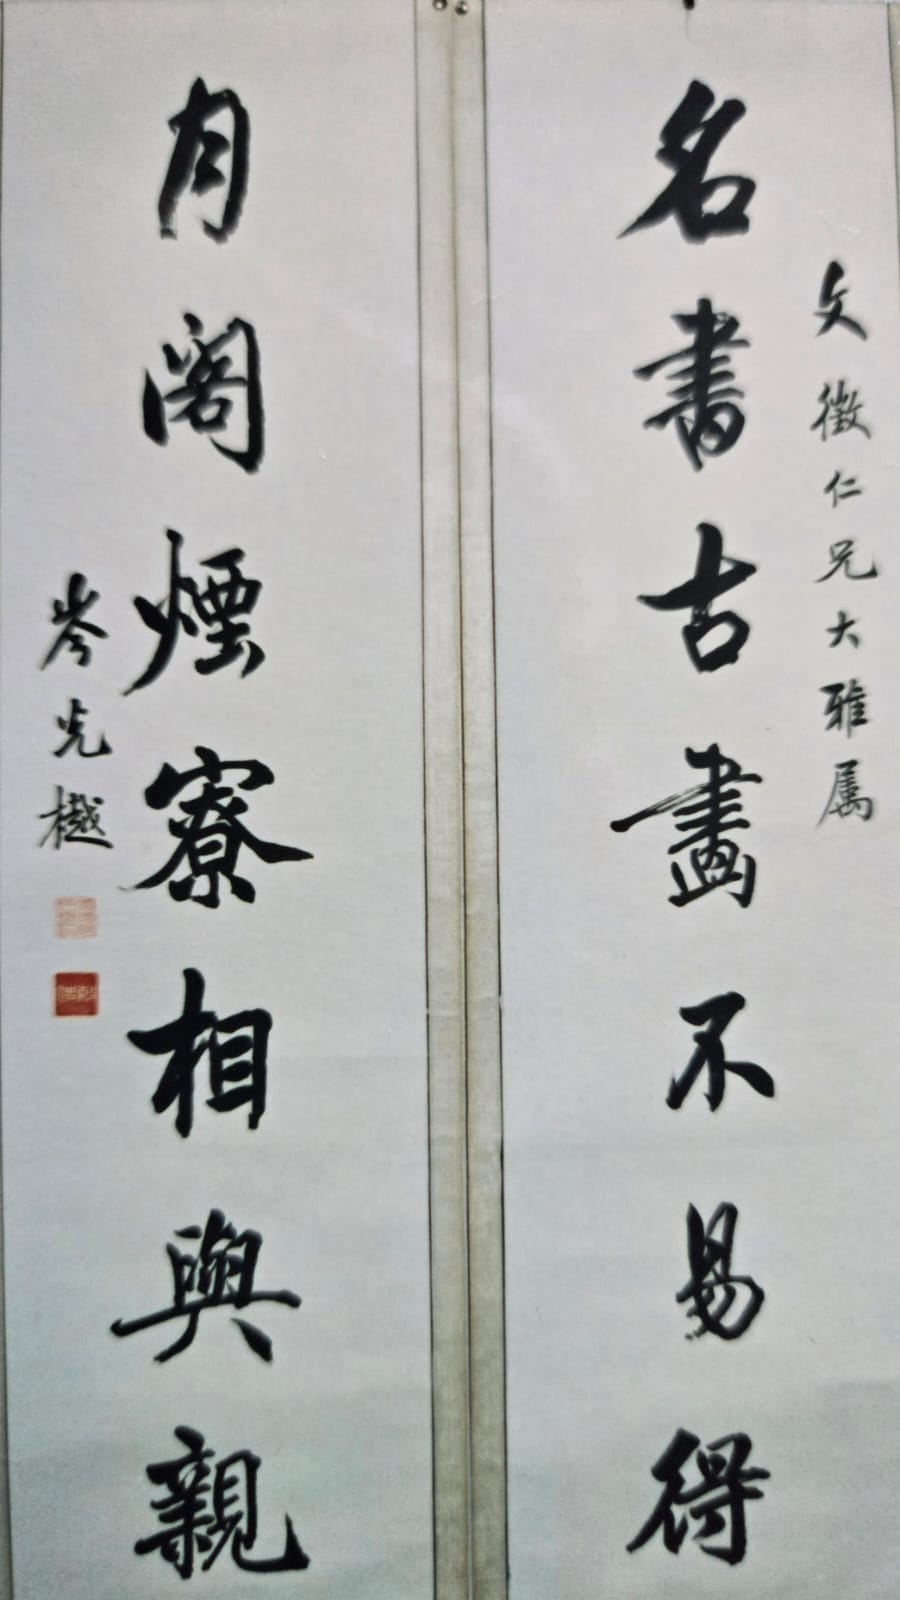 文徵仁兄大雅属
名書古畫不易得
月阁煙寮相與親
岑光樾